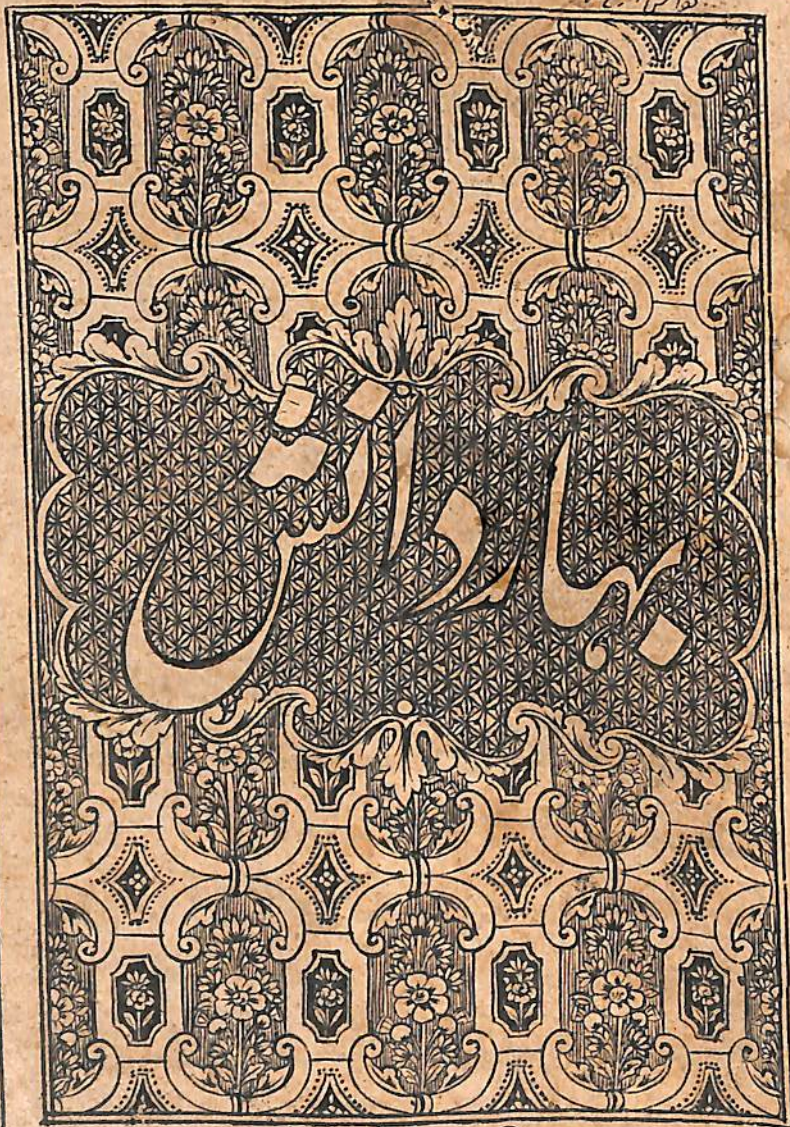 بهار دانش